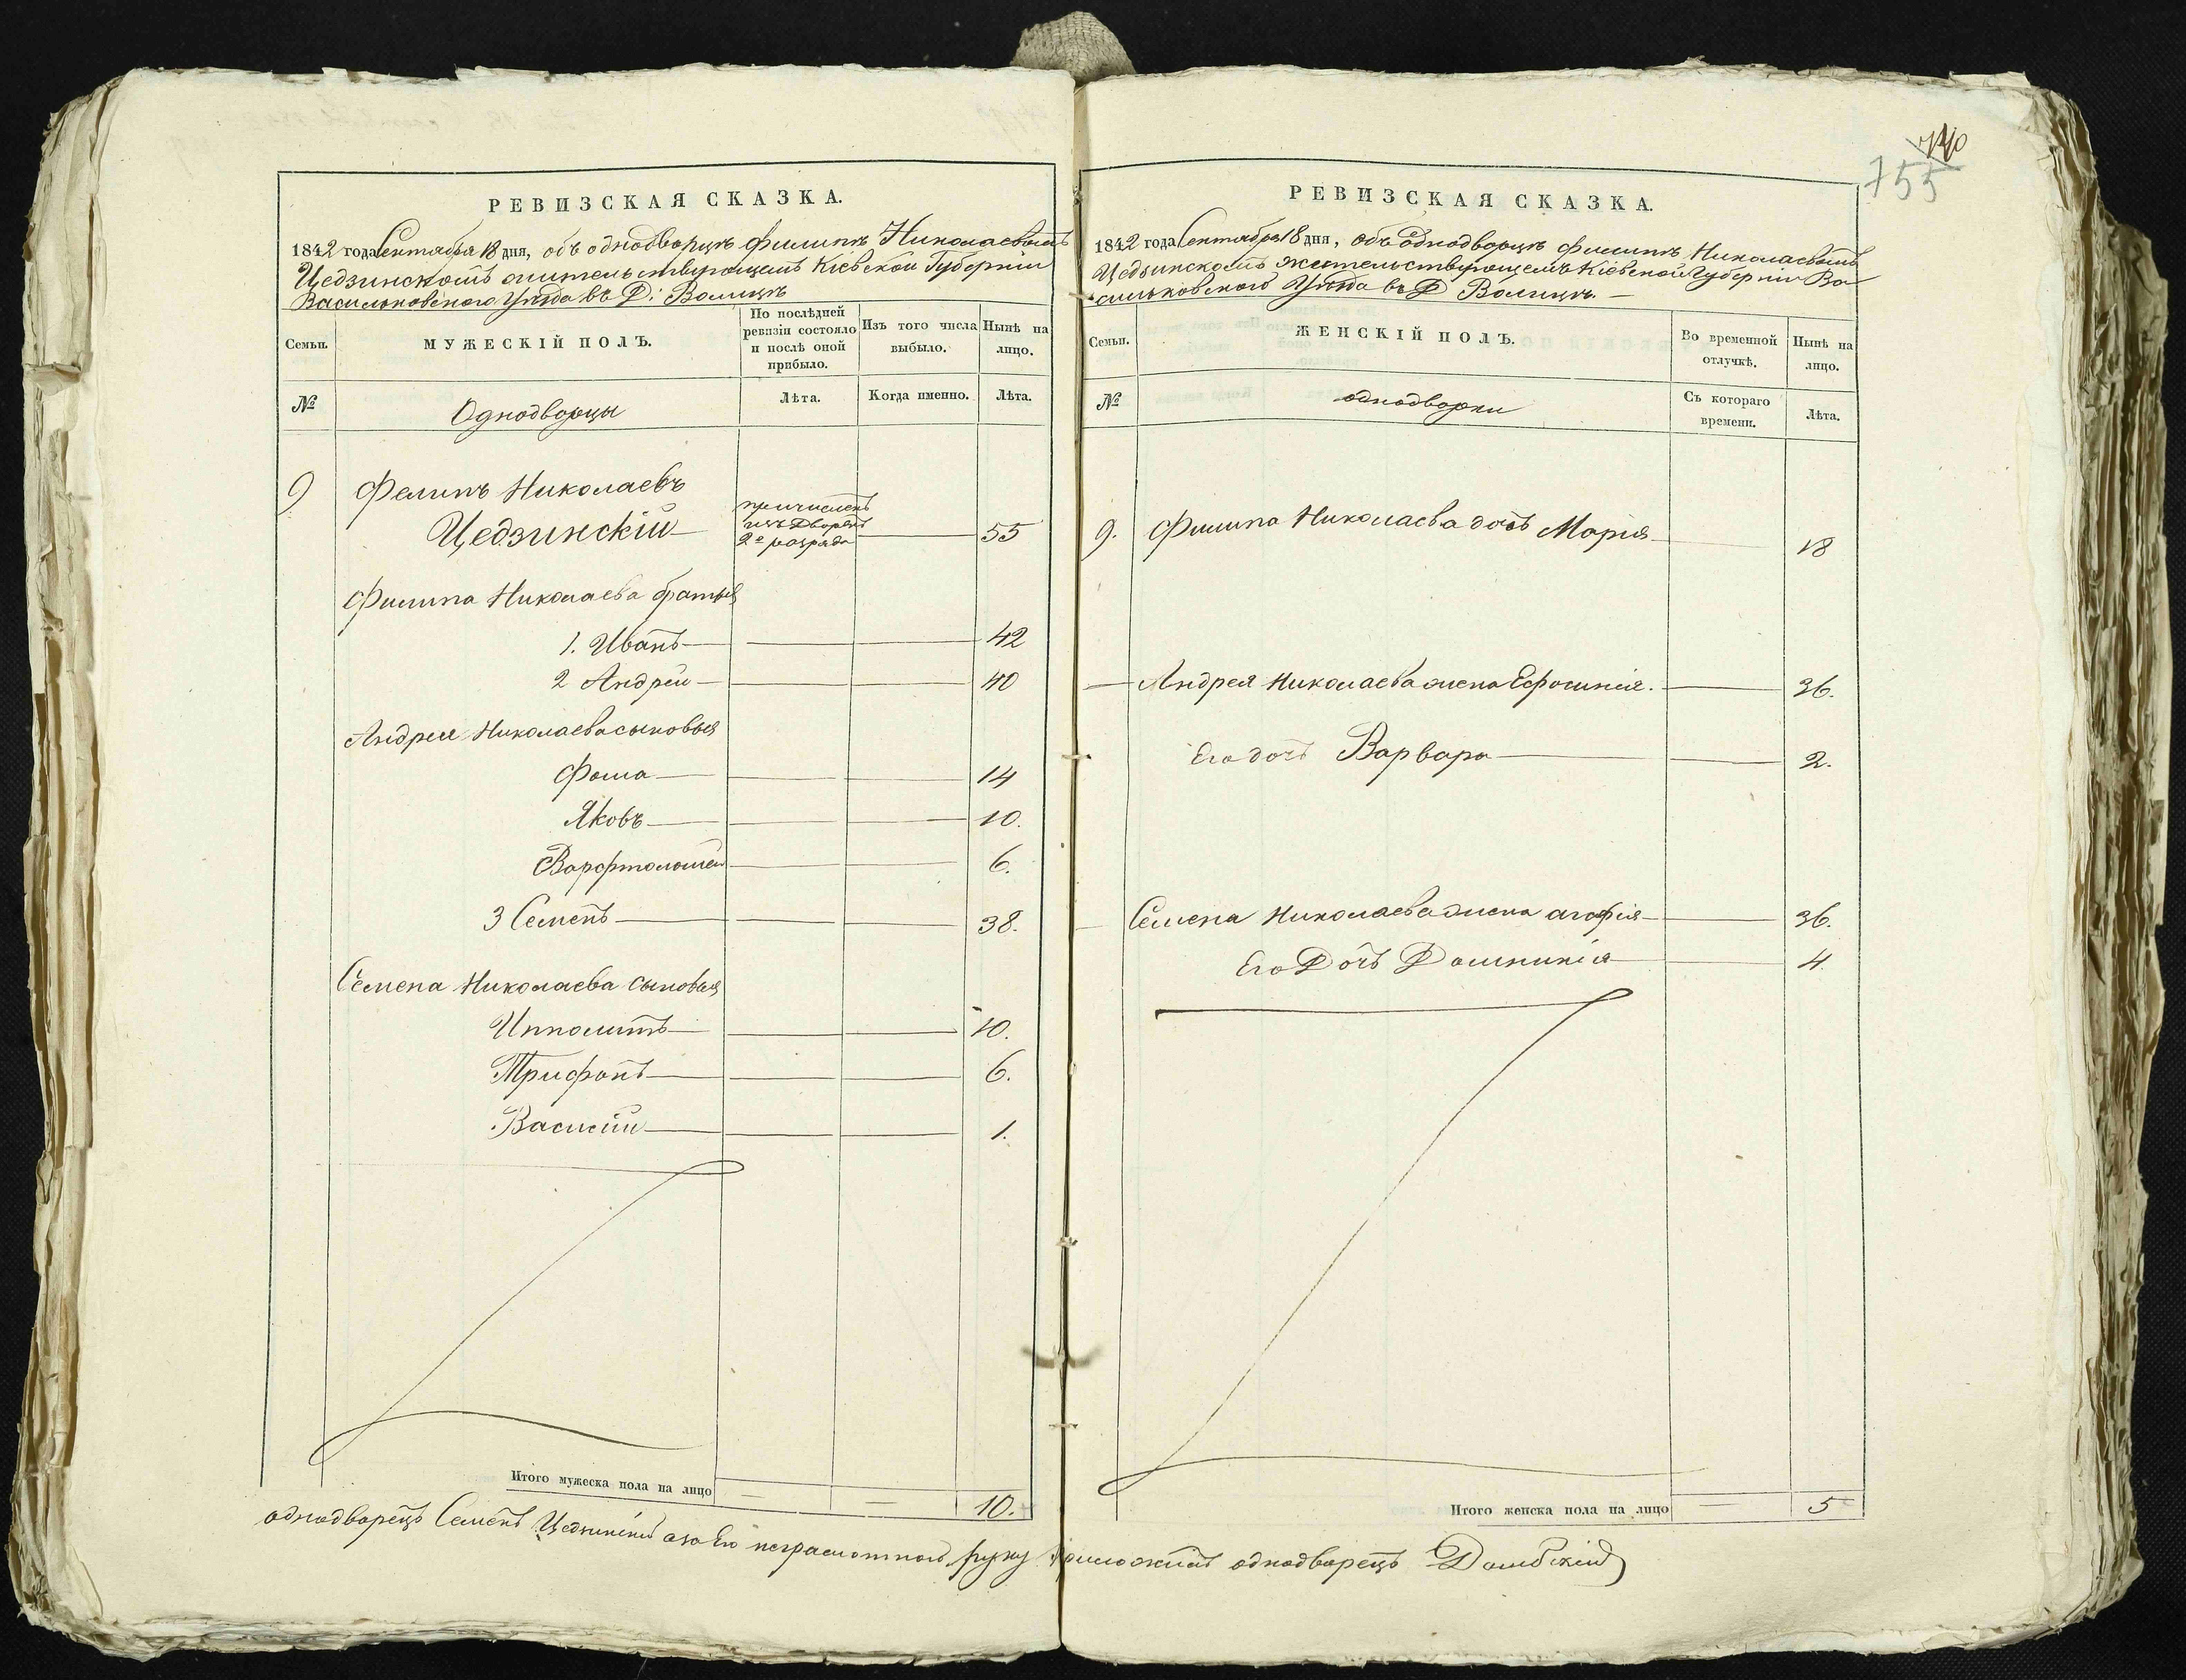 740
755
РЕВИЗСКАЯ СКАЗКА.
1842 года Сентября 18 дня, объ однодворцѣ Филипѣ Николаевомъ
Цедзинскомъ жительствующемъ Кіевской Губерніи
Васильковскаго Уѣзда въ Д: Волицѣ
Семьи.
МУЖЕСКІЙ ПОЛЪ.
По послѣдней ревизіи состояло и послѣ оной прибыло.
Изъ того числа выбыло.
Нынѣ на лицо.
№
Однодворцы
Лѣта.
Когда именно.
Лѣта.
9 Фелипъ Николаевъ
Цедзинскій причисленъ изъ Дворянъ 2го разряда 55
Филипа Николаева братья
1. Иванъ 42
2 Андрей 40
Андрея Николаева сыновья
Фома 14
Яковъ 10.
Варфтоломей 6.
3 Семенъ 38.
Семена Николаева сыновья
Ипполитъ 10.
Трифонъ 6.
Василій 1.
Итого мужеска пола на лицо 10.
РЕВИЗСКАЯ СКАЗКА.
1842 года Сентября 18 дня, объ однодворцѣ Филипѣ Николаевомъ
Цедзинскомъ жительствующемъ Кіевской Губерніи Ва
сильковскаго Уѣзда въ Д Волицѣ.
Семьи.
ЖЕНСКІЙ ПОЛЪ.
Во временной отлучкѣ.
Нынѣ на лицо.
№
однодворки
Съ котораго времени.
Лѣта.
9. Филипа Николаева дочь Марія 18
Андрея Николаева жена Ефросинія. 36.
Его дочь Варвара 2.
Семена Николаева жена агафія 36.
Его Дочь Домникія 4.
Итого женска пола на лицо 5
однодворецъ Семенъ Цедзинскій а за Его неграмотнаго руку приложилъ однодворецъ Домбскій